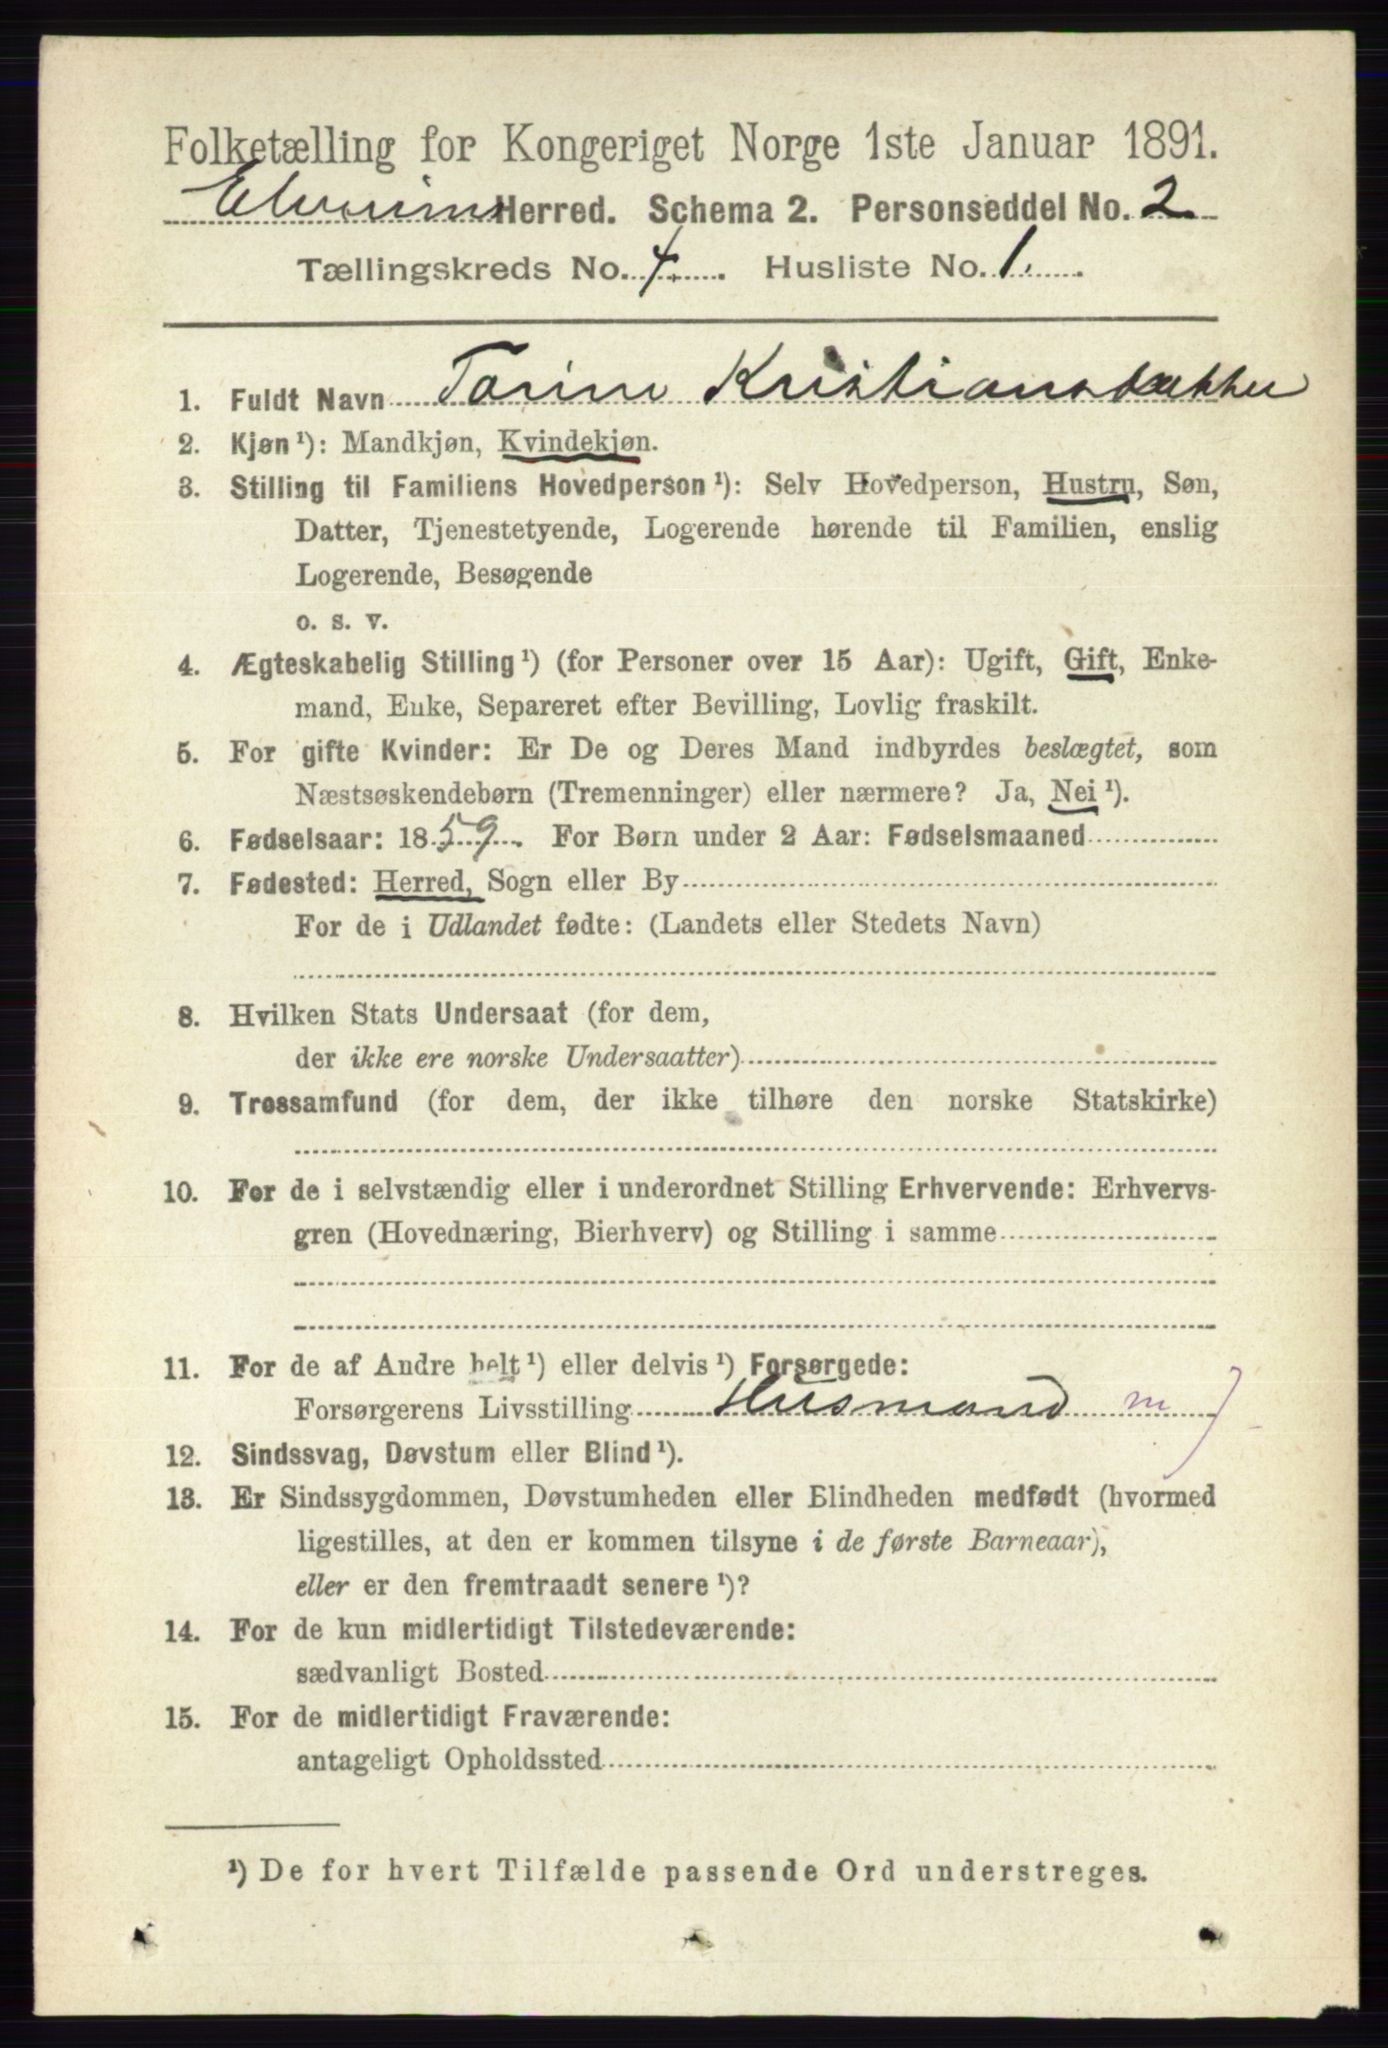 Folketælling for Kongeriget Norge 1ste Januar 1891.
Elverum Herred. Schema 2. Personseddel No. 2.
Tællingskreds No. 4. Husliste No. 1.
1. Fuldt Navn Torine Kristiansdatter
2. Kjøn¹): Mandkjøn, Kvindekjøn.
3. Stilling til Familiens Hovedperson¹): Selv Hovedperson, Hustru, Søn,
Datter, Tjenestetyende, Logerende hørende til Familien, enslig
Logerende, Besøgende
o. s. v.
4. Ægteskabelig Stilling¹) (for Personer over 15 Aar): Ugift, Gift, Enke-
mand, Enke, Separeret efter Bevilling, Lovlig fraskilt.
5. For gifte Kvinder: Er De og Deres Mand indbyrdes beslægtet, som
Næstsøskendebørn (Tremenninger) eller nærmere? Ja, Nei¹).
6. Fødselsaar: 1859. For Børn under 2 Aar: Fødselsmaaned
7. Fødested: Herred, Sogn eller By
For de i Udlandet fødte: (Landets eller Stedets Navn)
8. Hvilken Stats Undersaat (for dem,
der ikke ere norske Undersaatter)
9. Trossamfund (for dem, der ikke tilhøre den norske Statskirke)
10. For de i selvstændig eller i underordnet Stilling Erhvervende: Erhvervs-
gren (Hovednæring, Bierhverv) og Stilling i samme
11. For de af Andre helt¹) eller delvis¹) Forsørgede:
Forsørgerens Livsstilling Husmand m
12. Sindssvag, Døvstum eller Blind¹).
13. Er Sindssygdommen, Døvstumheden eller Blindheden medfødt (hvormed
ligestilles, at den er kommen tilsyne i de første Barneaar),
eller er den fremtraadt senere¹)?
14. For de kun midlertidigt Tilstedeværende:
sædvanligt Bosted
15. For de midlertidigt Fraværende:
antageligt Opholdssted
¹) De for hvert Tilfælde passende Ord understreges.